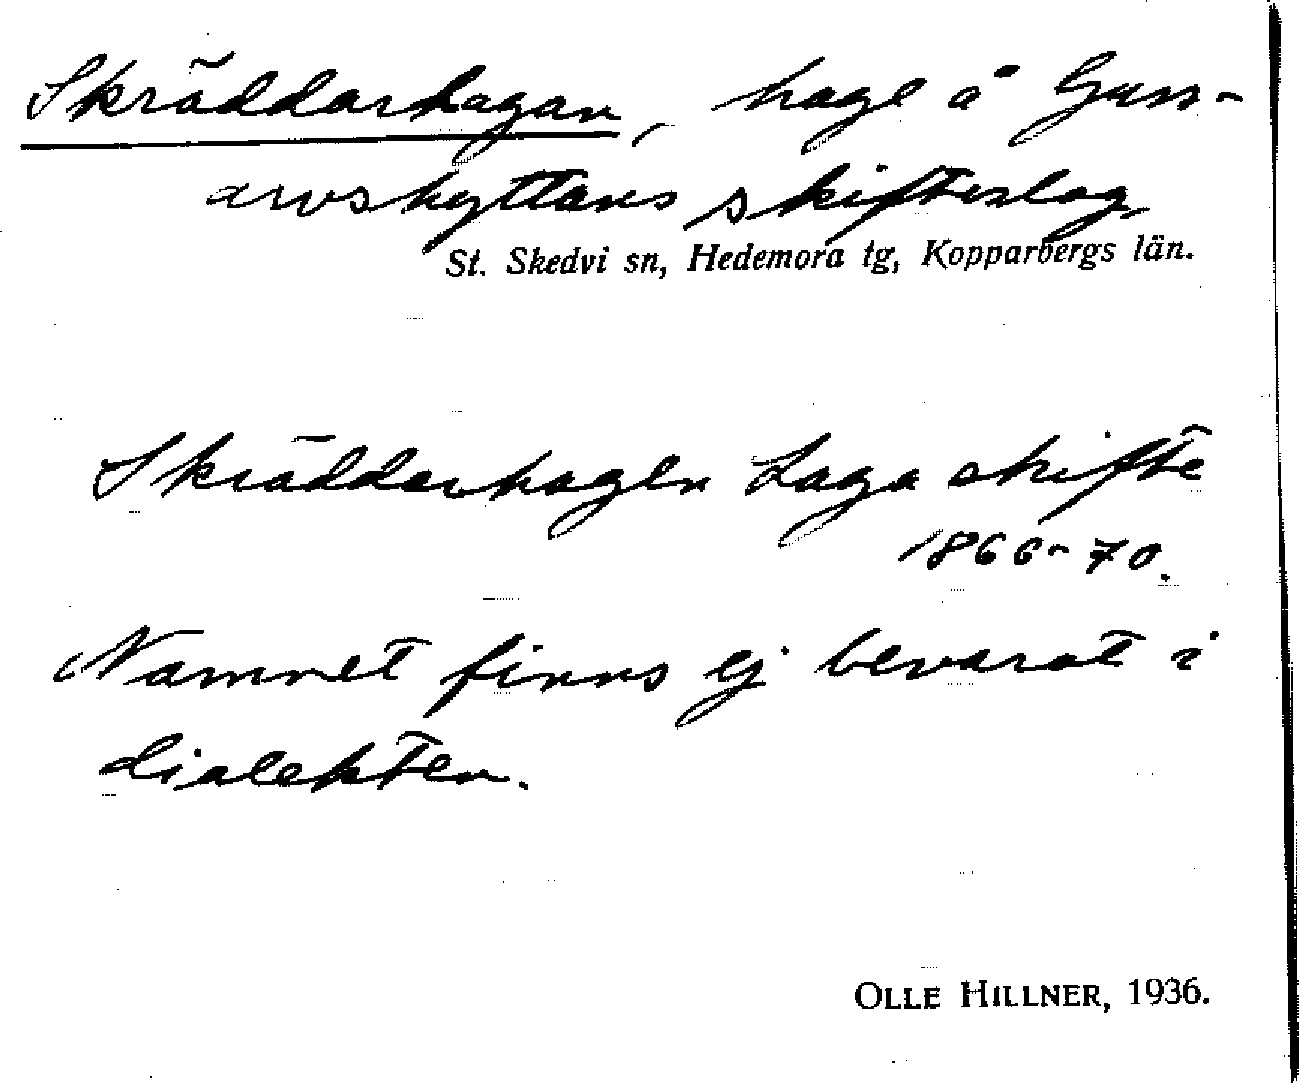 Skräddarhagan, hage å Gunn-
arvshyttans skifteslag
St. Skedvi sn, Hedemora tg, Kopparbergs län.
Skräddarhagen Laga skifte
1866-70.
Namnet finns ej bevarat i
dialekten.
OLLE HILLNER, 1936.